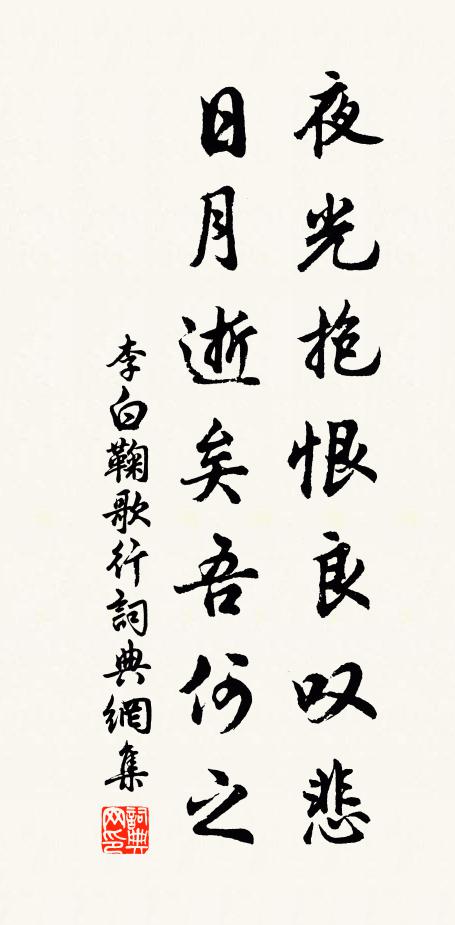 夜光抱恨良叹悲
日月逝矣吾何之
李白鞠歌行詞典網集
詞典网印